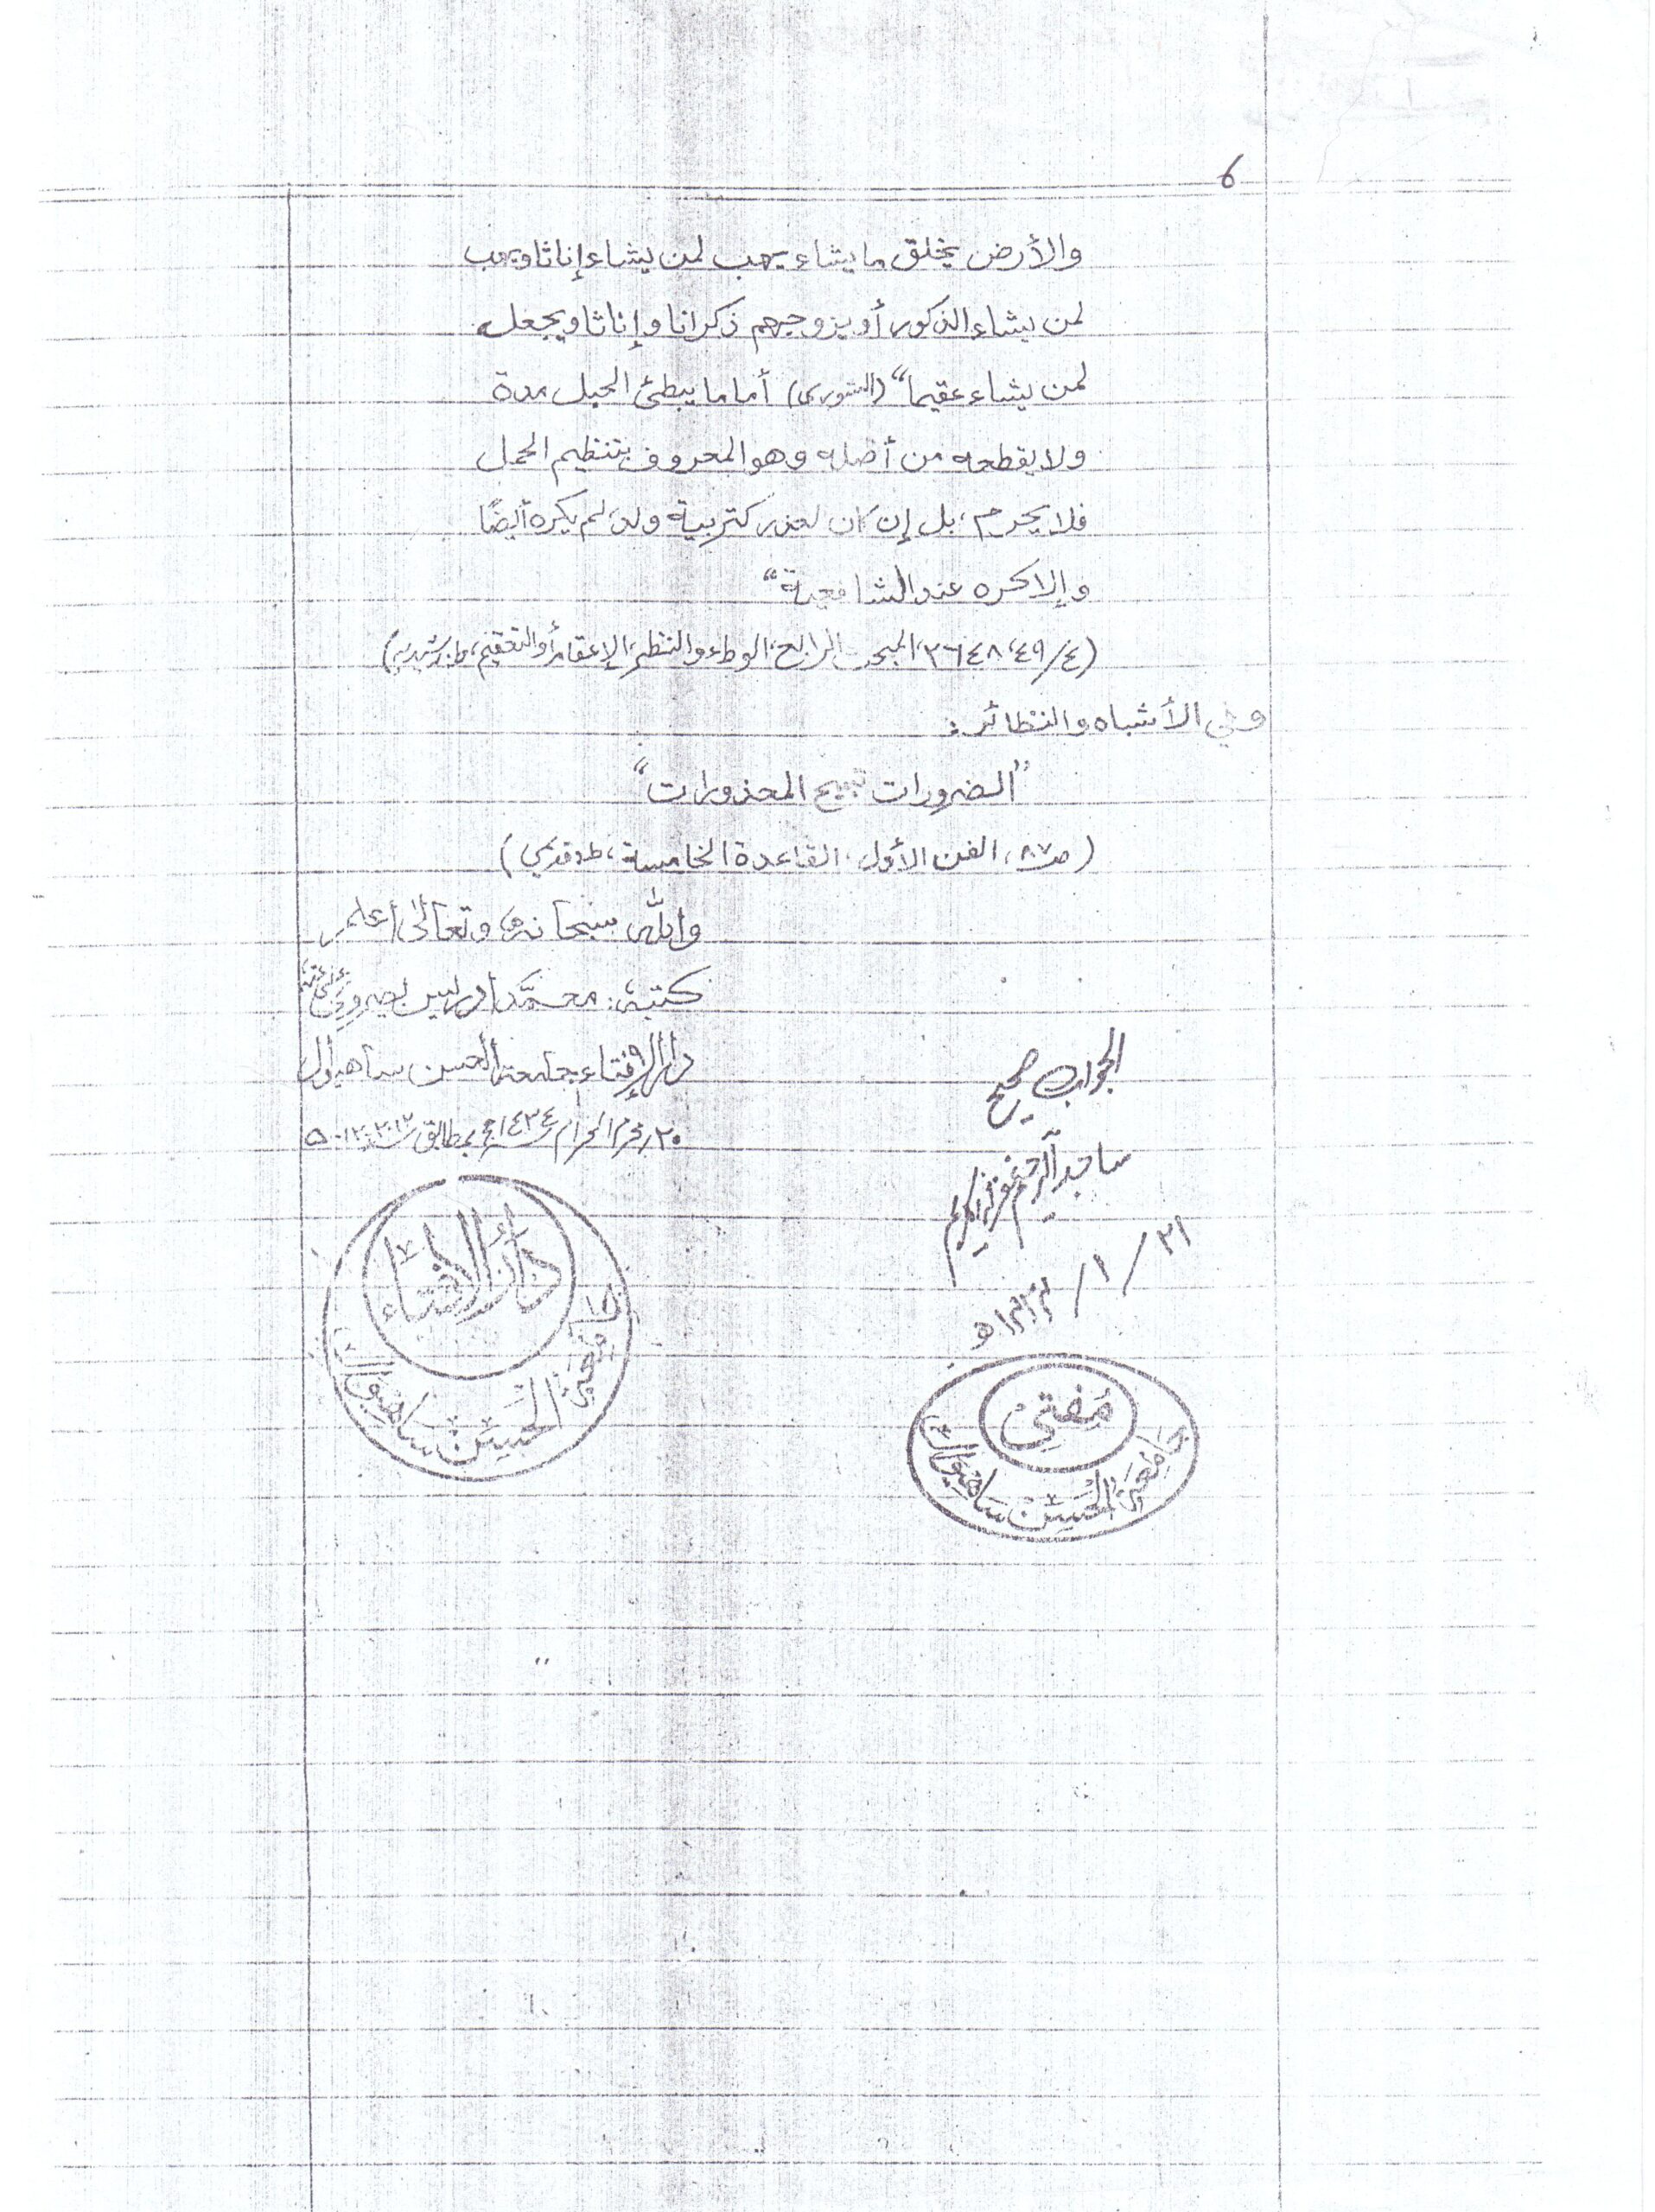 6
والأرض يخلق ما يشاء يهب لمن يشاء إناثا ويهب
لمن يشاء الذكور أو يزوجهم ذكرانا وإناثا ويجعل
لمن يشاء عقيما“ (الشورى) أما ما يبطئ الحبل مدة
ولا يقطعه من أصله وهو المعروف بتنظيم الحمل
فلا يحرم، بل إن كان لعذر كتربية ولد، لم يكره أيضًا
وإلا كره عند الشافعية“
(٤/٤٩،٢٦٤٨، المبحث الرابع، الوطء والنظر، الإعقام أو التعقيم، ط: رشيدية)
وفي الأشباه والنظائر:
”الضرورات تبيح المحذورات“
(ص٨٧، الفن الأول، القاعدة الخامسة، ط: قديمي)
والله سبحانه وتعالى أعلم
كتبه: محمد ادريس عفي عنه
دار الإفتاء جامعة الحسن ساهيوال
٢٠/محرم الحرام ١٤٣٤ھ بمطابق ٢٠١٢-١٢-٥
الجواب صحيح
ساجد الرحيم
٢١/١/١٤٣٤ھ
دار الافتاء
جامعة الحسن ساهيوال
مفتي
جامعة الحسن ساهيوال